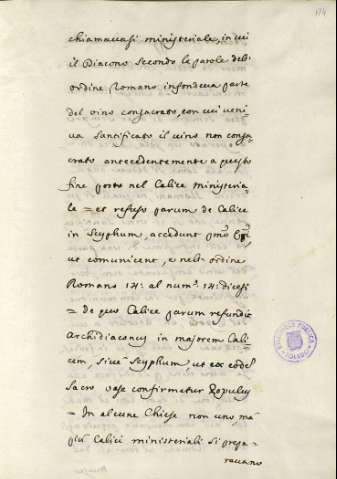 174
chiamavasi ministeriale, in cui
il Diacono secondo le parole dell'
ordine Romano infondeva parte
del vino consacrato, con cui veni=
va santificato il vino non consa=
crato antecedentemente a questo
fine posto nel Calice ministeria=
le = et refuso parum de Calice
in Scyphum, accedunt pmo Epi,
ut comunicent, e nell'ordine
Romano 14: al num. 14: dicesi
= de quo Calice parum refundit
Archidiaconus in majorem Cali=
cem, sive Scyphum, ut ex eodem
sacro vase confirmetur populus
= In alcune Chiese non uno ma
più Calici ministeriali si prepa=
ravano